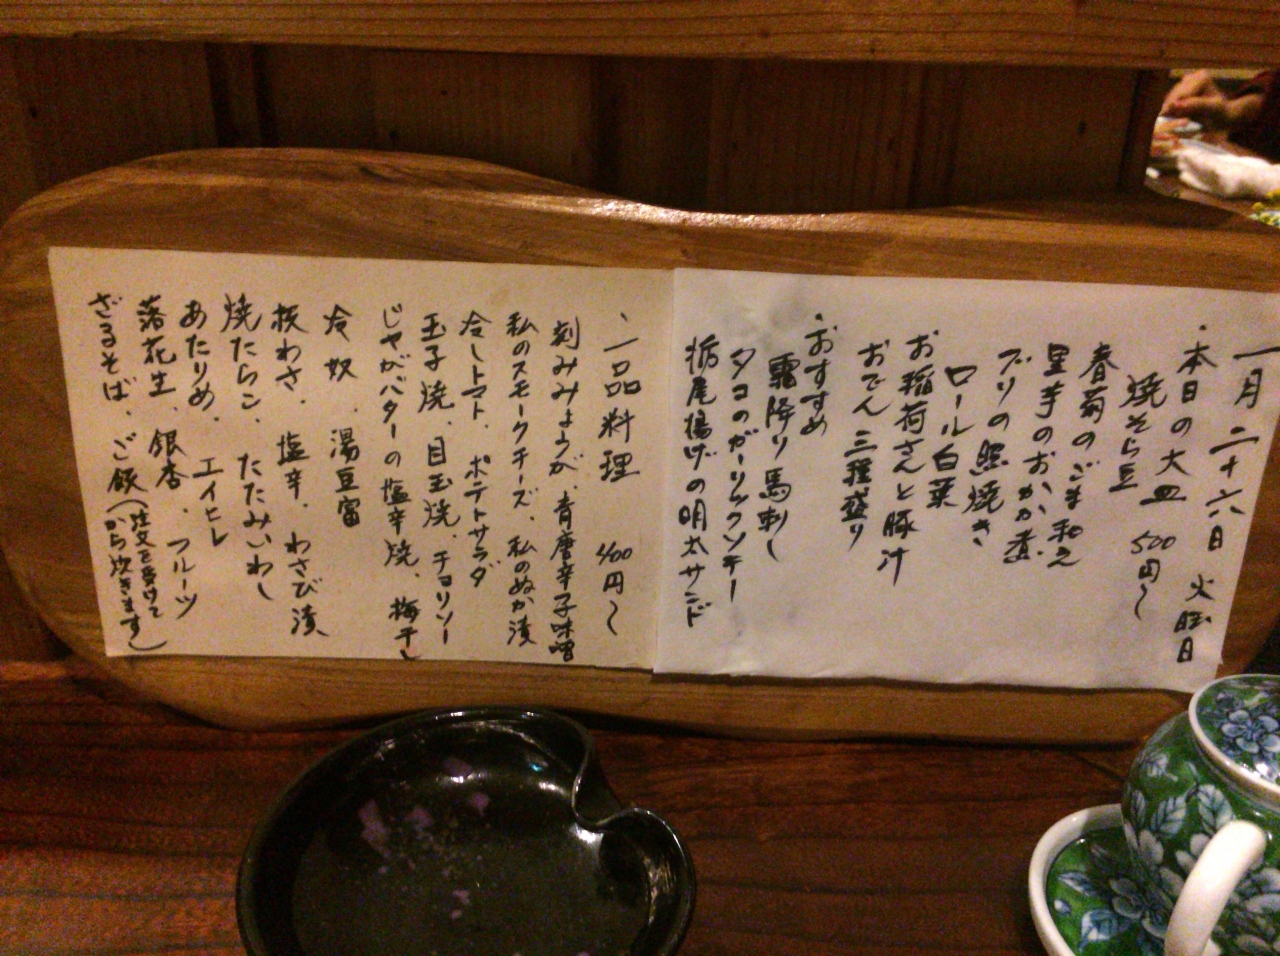 一月二十六日 火曜日
・本日の大皿 500円〜
焼そら豆
春菊のごま和え
里芋のおかか煮
ブリの照焼き
ロール白菜
お稲荷さんと豚汁
おでん三種盛り
・おすすめ
霜降り馬刺し
タコのガーリックソテー
栃尾揚げの明太サンド
、一品料理 400円〜
刻みみょうが、青唐辛子味噌
私のスモークチーズ、私のぬか漬
冷しトマト、ポテトサラダ
玉子焼、目玉焼、チョリソー
じゃがバターの塩辛焼、梅干し
冷奴、湯豆富
板わさ、塩辛、わさび漬
焼たらこ、たたみいわし
あたりめ、エイヒレ
落花生、銀杏、フルーツ
ざるそば、ご飯(注文を受けてから炊きます)